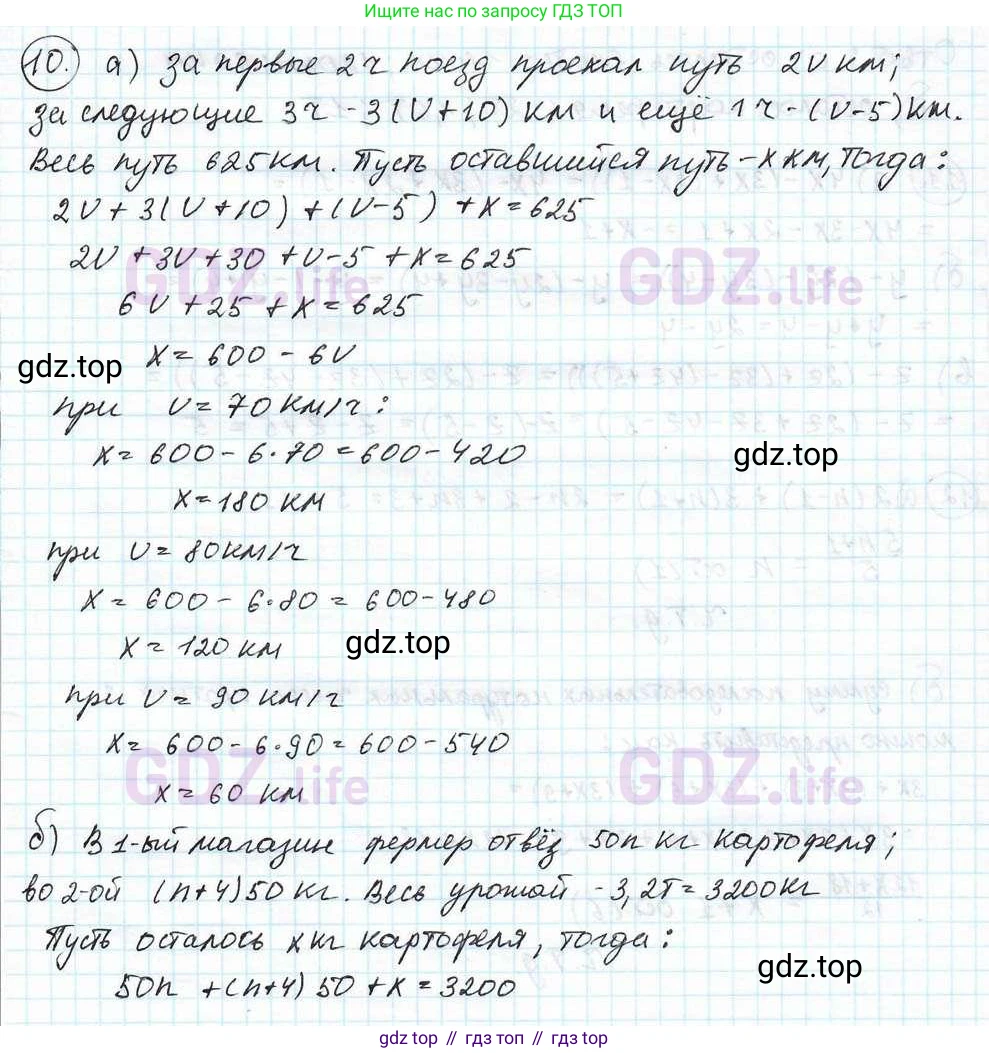 Ищите нас по запросу ГДЗ ТОП
10. а) За первые 2ч поезд проехал путь 2v км;
за следующие 3ч - 3(v+10) км и ещё 1ч - (v-5) км.
Весь путь 625 км. Пусть оставшийся путь - x км, тогда:
2v + 3(v+10) + (v-5) + x = 625
2v + 3v + 30 + v - 5 + x = 625
6v + 25 + x = 625
x = 600 - 6v
gdz.top
при v = 70 км/ч:
x = 600 - 6·70 = 600 - 420
gdz.top
x = 180 км
при v = 80 км/ч
x = 600 - 6·80 = 600 - 480
x = 120 км
gdz.top
при v = 90 км/ч
x = 600 - 6·90 = 600 - 540
x = 60 км
б) В 1-ый магазин фермер отвёз 50n кг картофеля;
во 2-ой (n+4)50 кг. Весь урожай - 3,2т = 3200 кг
Пусть осталось x кг картофеля, тогда:
50n + (n+4)50 + x = 3200
gdz.top
GDZ.life
GDZ.life
GDZ.life
GDZ.life
gdz.top // гдз топ // gdz.top // гдз топ // gdz.top